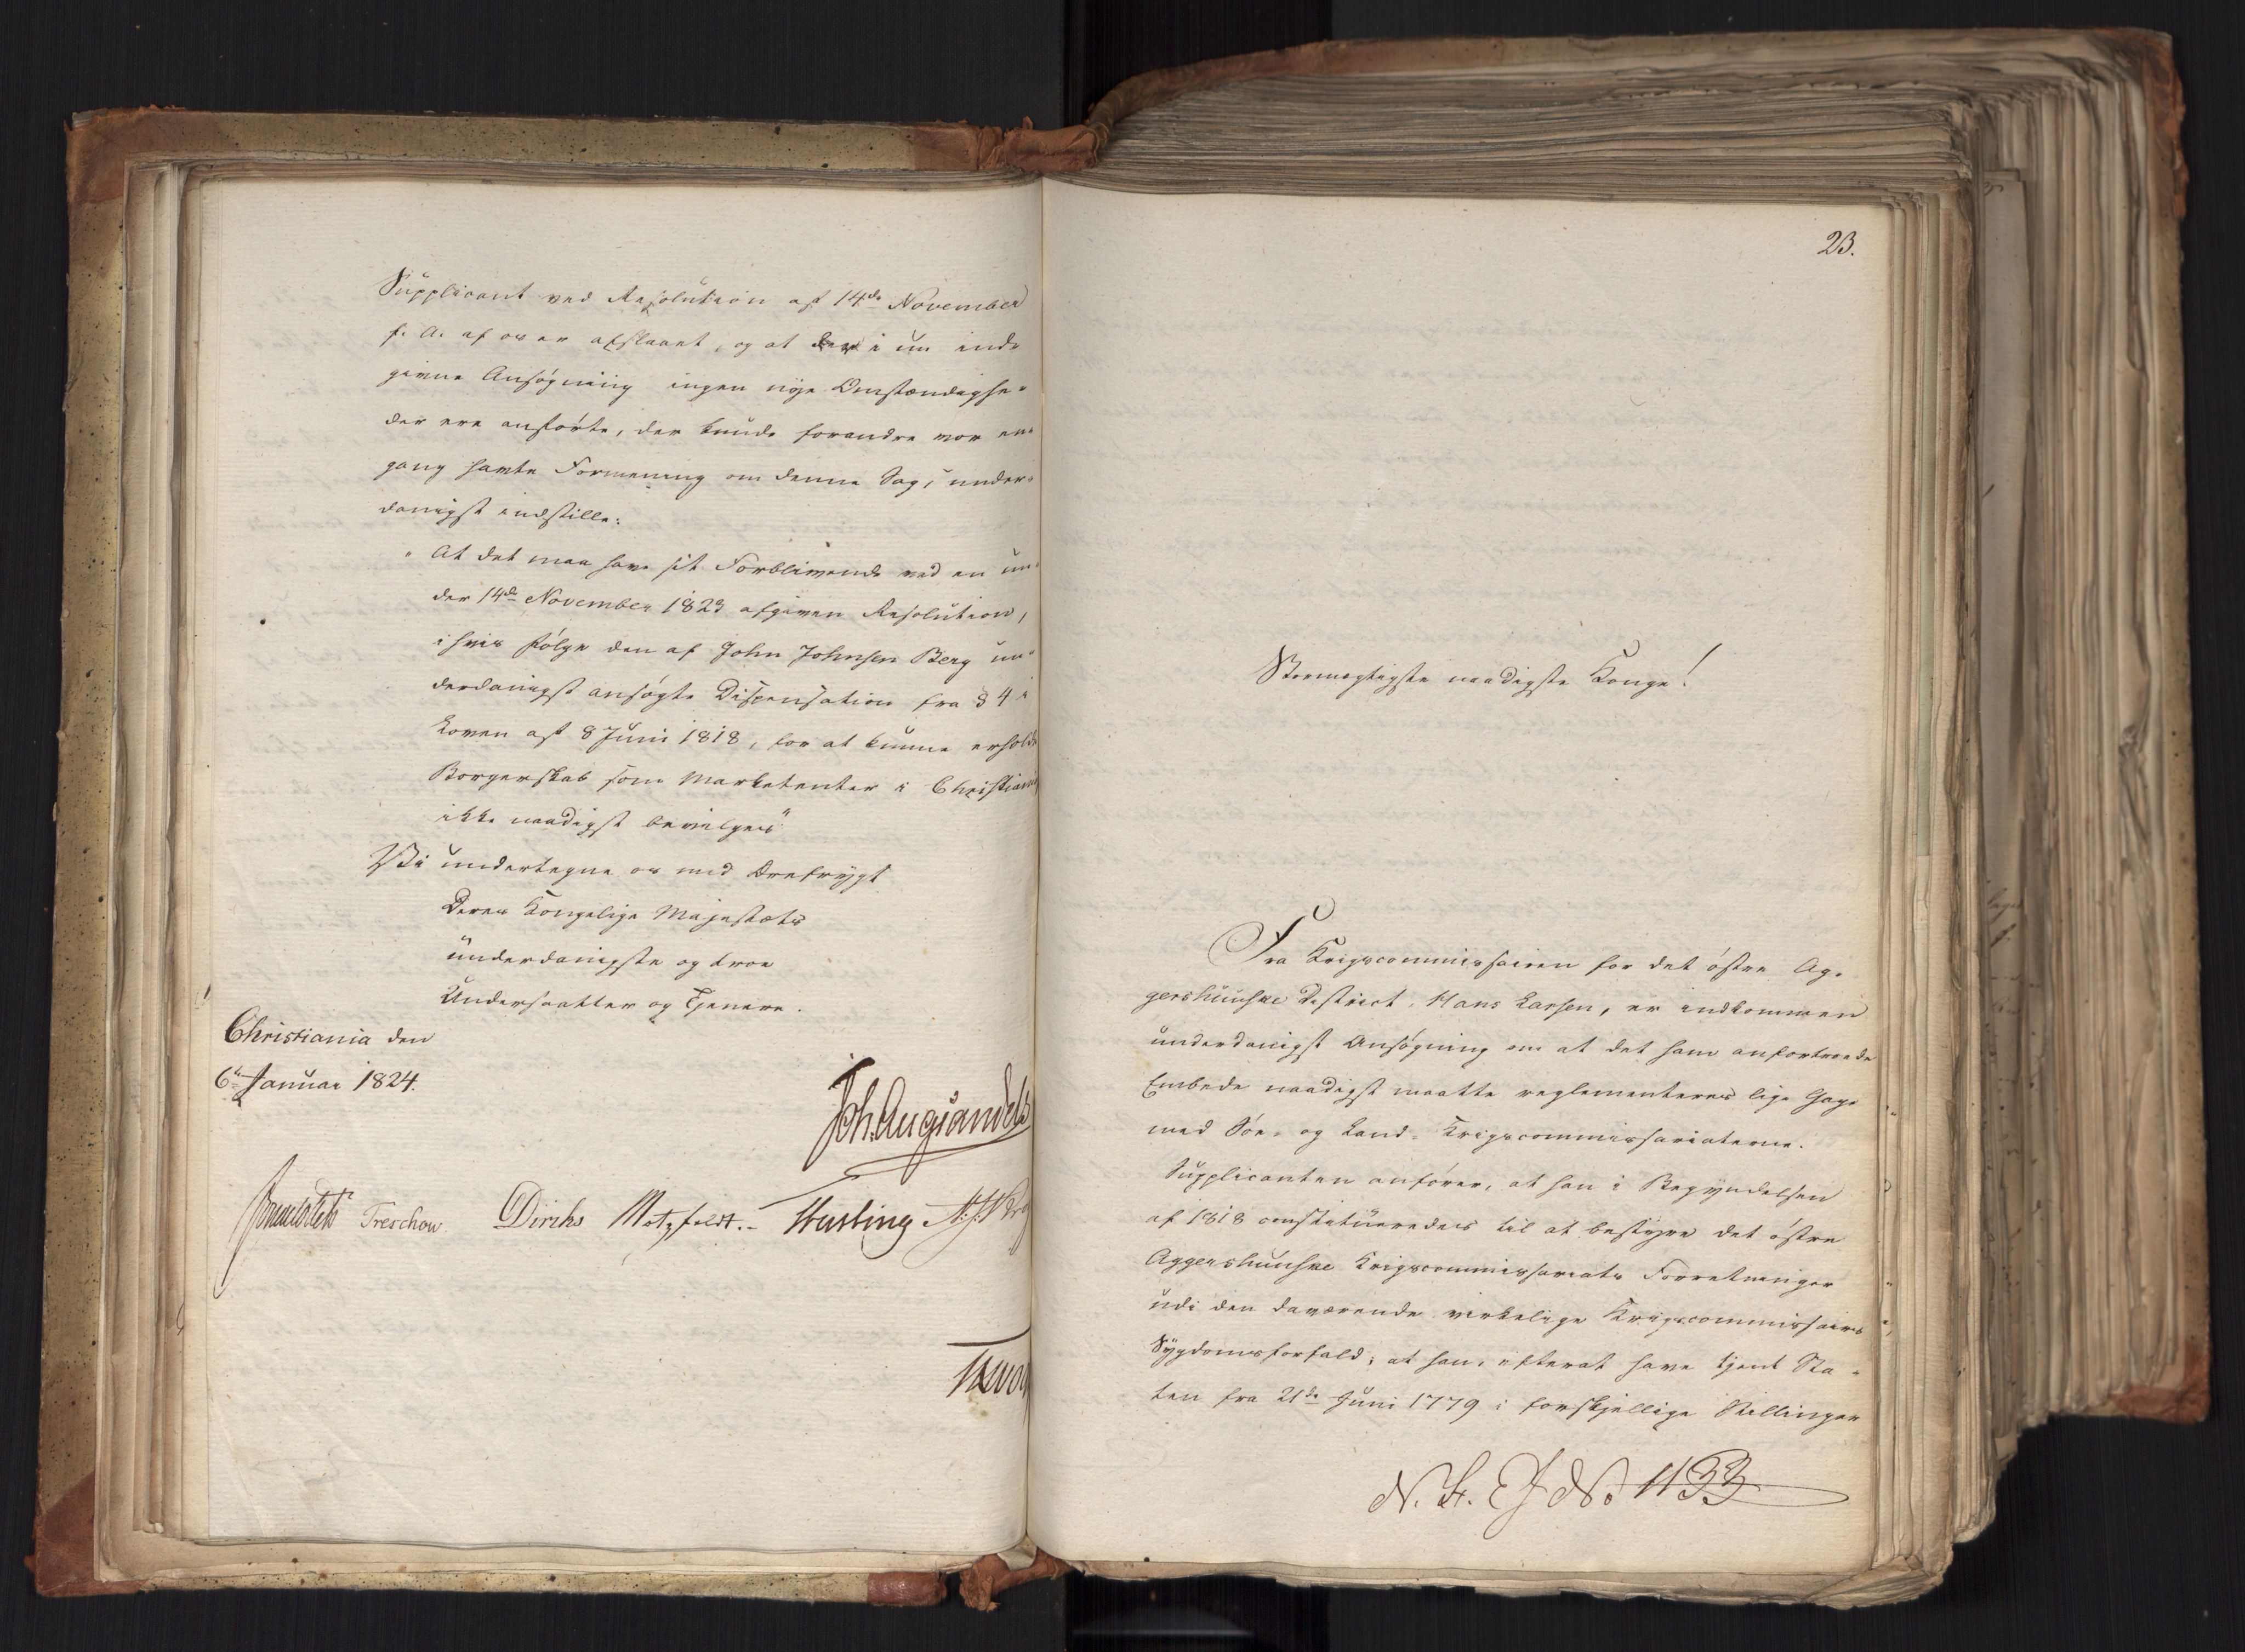 Supplicant ved Resolution af 14de November
f. A. er afslaaet, og at der i nu ind-
givne Ansøgning ingen nye Omstændighe-
der ere anførte, der kunde forandre vor en-
gang havte Formening om denne Sag, under-
danigst indstille:
"At det maa have sit Forblivende ved en un-
der 14de November 1823 afgiven Resolution,
i hvis Følge den af John Johnsen Berg un-
derdanigst ansøgte Dispensation fra § 4 i
Loven af 8 Juni 1818, for at kunne erholde
Borgerskab som Marketenter i Christiania
ikke naadigst bevilges"
Vi undertegne os med Ærefrygt
Deres Kongelige Majestæts
underdanigste og troe
Undersaatter og Tjenere.
Christiania den
6te Januar 1824.
Joh. Aug. Sandels
Sommerfeldt Treschow Diriks Motzfeldt. Fasting
23.
Stormægtigste naadigste Konge!
Fra Krigscommissairen for det østre Ag-
gershuuske District, Hans Larsen, er indkommen
underdanigst Ansøgning om at det ham anfortroede
Embede naadigst maatte reglementeres lige Gage
med Søe- og Land-Krigscommissariaterne.
Supplicanten anfører, at han i Begyndelsen
af 1818 constitueredes til at bestyre det østre
Aggershuuske Krigscommissariats Forretninger
udi den daværende virkelige Krigscommissairs
Sygdomsforfald; at han, efterat have tjent Sta-
ten fra 21de Juni 1779 i forskjellige Stillinger
N. 1133